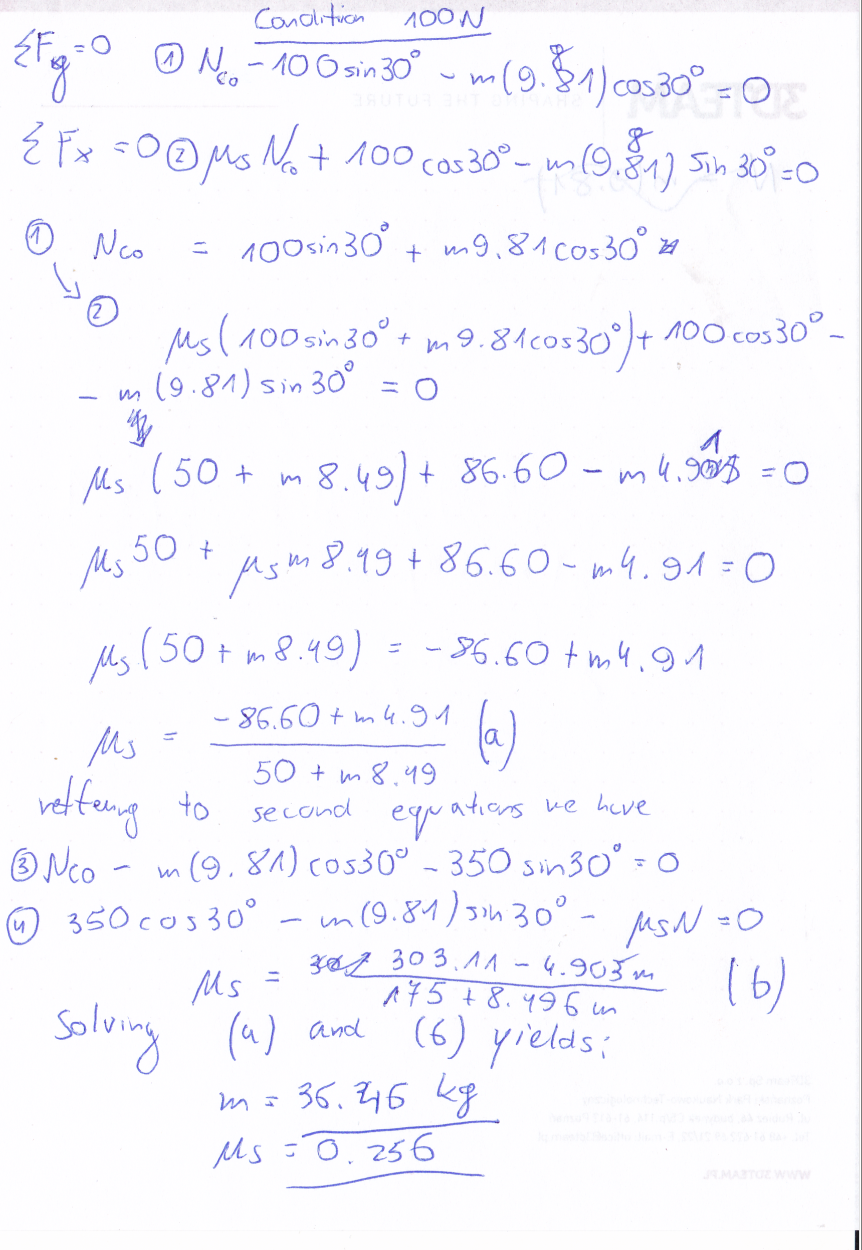 Condition 100N
ΣFy=0 ① Nco - 100sin30° - m(9.81)cos30° = 0
ΣFx = 0 ② μs Nco + 100 cos30° - m(9.81) sin 30° = 0
① Nco = 100sin30° + m9.81cos30°
② μs(100sin30° + m9.81cos30°) + 100cos30° -
- m(9.81)sin30° = 0
μs (50 + m 8.49) + 86.60 - m 4.91 = 0
μs 50 + μs m 8.49 + 86.60 - m4.91 = 0
μs(50 + m8.49) = -86.60 + m4.91
μs = (-86.60 + m4.91)/(50 + m8.49) (a)
to second equations we have
③ Nco - m(9.81)cos30° - 350sin30° = 0
④ 350cos30° - m(9.81)sin30° - μsN = 0
μs = (303.11 - 4.905m)/(175 + 8.496m) (b)
Solving (a) and (b) yields:
m = 36.246 kg
μs = 0.256
WWW.3DTEAM.PL